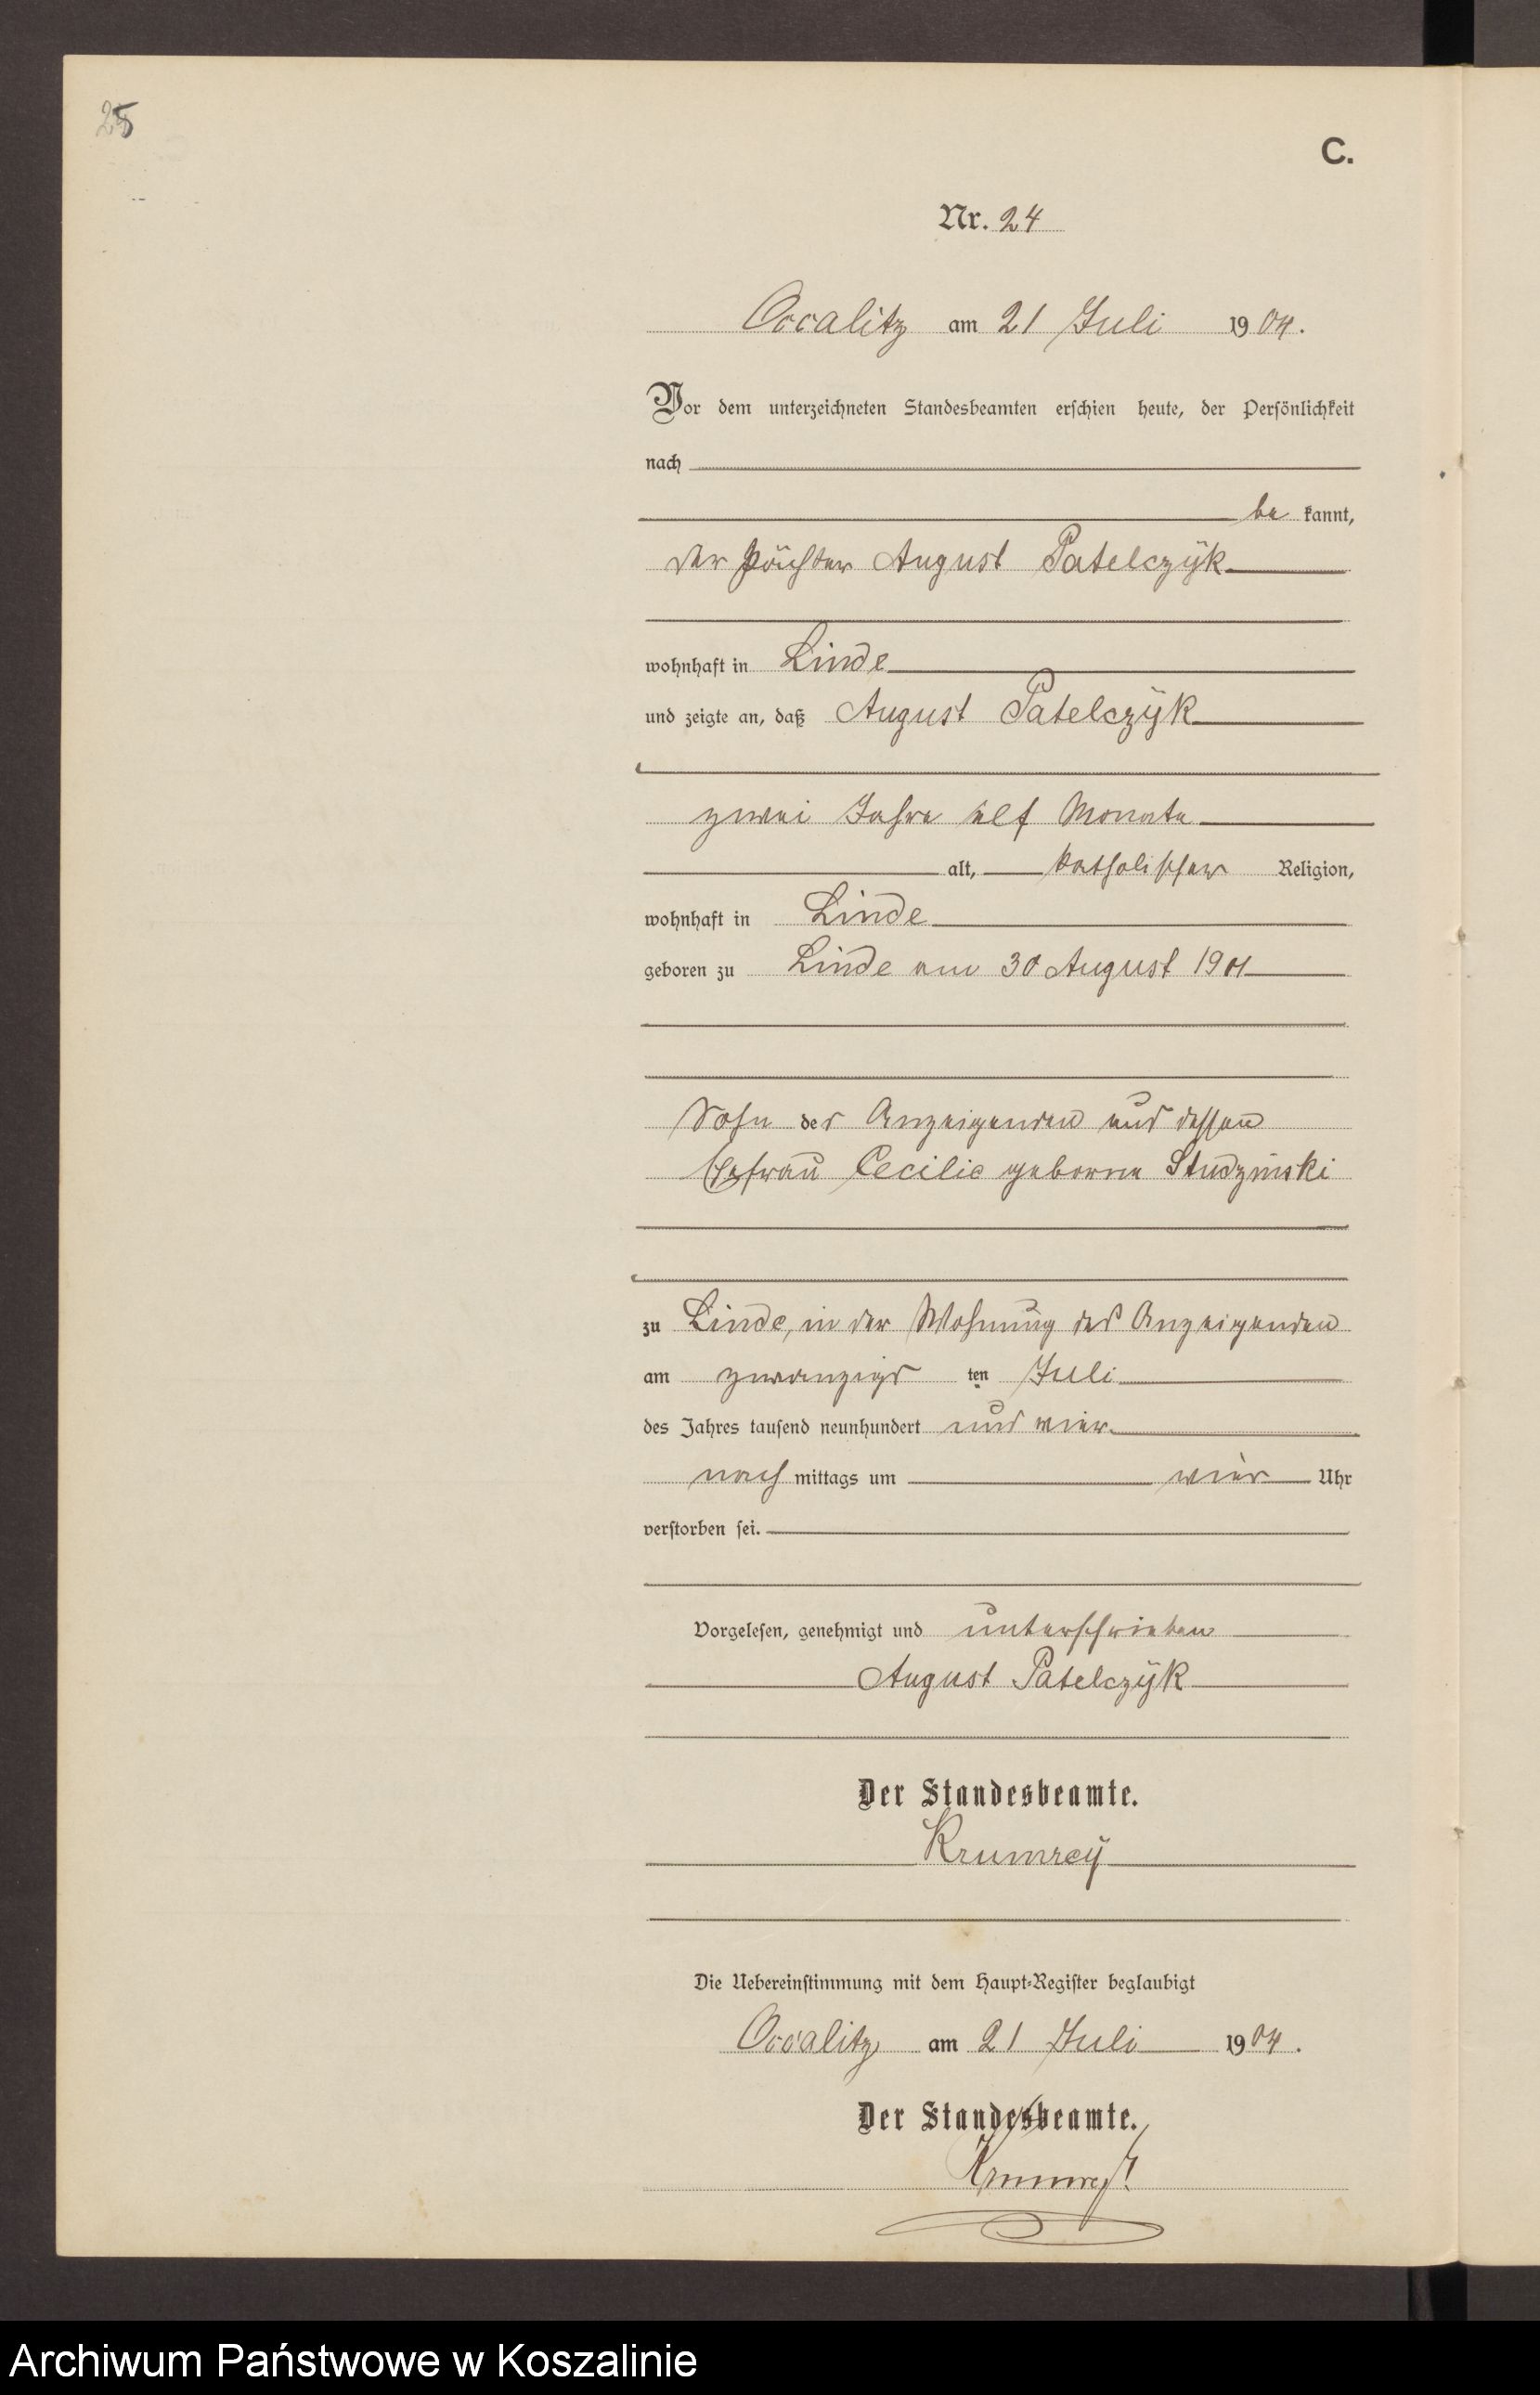 25
C.
Nr. 24
Occalitz am 21 Juli 1904.
Vor dem unterzeichneten Standesbeamten erschien heute, der Persönlichkeit
nach
be kannt,
der Pächter August Patelczÿk
wohnhaft in Linde
und zeigte an, daß August Patelczÿk
zwei Jahre elf Monate
alt, katholischer Religion,
wohnhaft in Linde
geboren zu Linde am 30 August 1901
Sohn des Anzeigenden und dessen
Ehefrau Cecilie geborne Studzinski
zu Linde, in der Wohnung des Anzeigenden
am zwanzigsten Juli
des Jahres tausend neunhundert und vier
nachmittags um vier Uhr
verstorben sei.
Vorgelesen, genehmigt und unterschrieben
August Patelczÿk
Der Standesbeamte.
Krumreÿ
Die Uebereinstimmung mit dem Haupt-Register beglaubigt
Occalitz am 21 Juli 1904.
Der Standesbeamte.
Krumreÿ
Archiwum Państwowe w Koszalinie